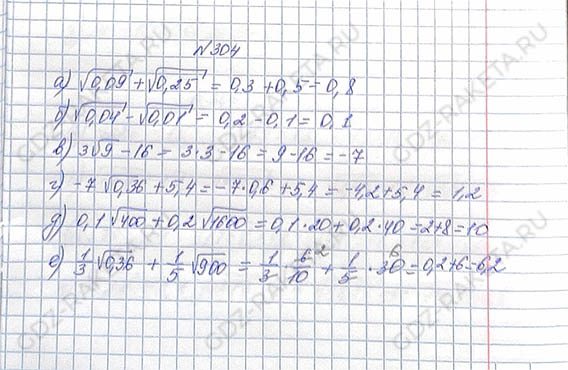 №304
а) √0,09 + √0,25 = 0,3 + 0,5 = 0,8
б) √0,04 - √0,01 = 0,2 - 0,1 = 0,1
в) 3√9 - 16 = 3·3 - 16 = 9 - 16 = -7
г) -7√0,36 + 5,4 = -7·0,6 + 5,4 = -4,2 + 5,4 = 1,2
д) 0,1√400 + 0,2√1600 = 0,1·20 + 0,2·40 = 2 + 8 = 10
е) 1/3 √0,36 + 1/5 √900 = 1/3 · 6/10 2 + 1/5 · 30 6 = 0,2 + 6 = 6,2
GDZ-RAKETA.RU
GDZ-RAKETA.RU
GDZ-RAKETA.RU
GDZ-RAKETA.RU
GDZ-RAKETA.RU
GDZ-RAKETA.RU